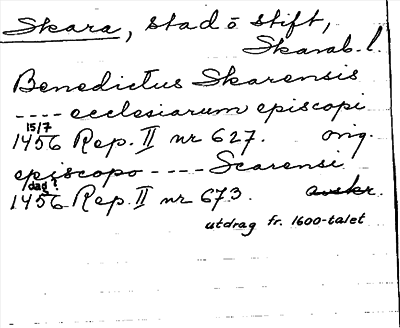 Skara, stad o stift,
Skarab. l.
Benedictus Skarensis
---- ecclesiarum episcopi
15/7
1456 Rep. II nr 627. orig.
episcopo ---- Scarensi
dag?
1456 Rep. II nr 673. avskr.
utdrag fr. 1600-talet